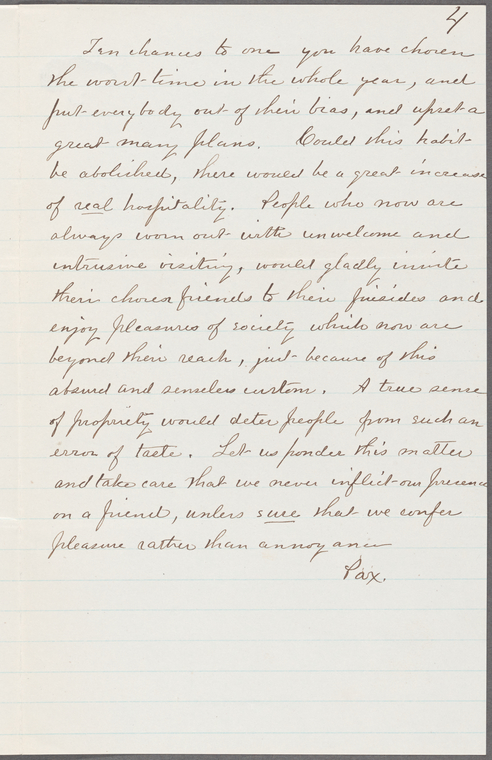 4
Ten chances to one you have chosen
the worst time in the whole year, and
put everybody out of their bias, and upset a
great many plans. Could this habit
be abolished, there would be a great increase
of real hospitality. People who now are
always worn out with unwelcome and
intrusive visiting, would gladly invite
their chosen friends to their firesides and
enjoy pleasures of society which now are
beyond their reach, just because of this
absurd and senseless custom. A true sense
of propriety would deter people from such an
error of taste. Let us ponder this matter
and take care that we never inflict our presence
on a friend, unless sure that we confer
pleasure rather than annoyance
Pax.